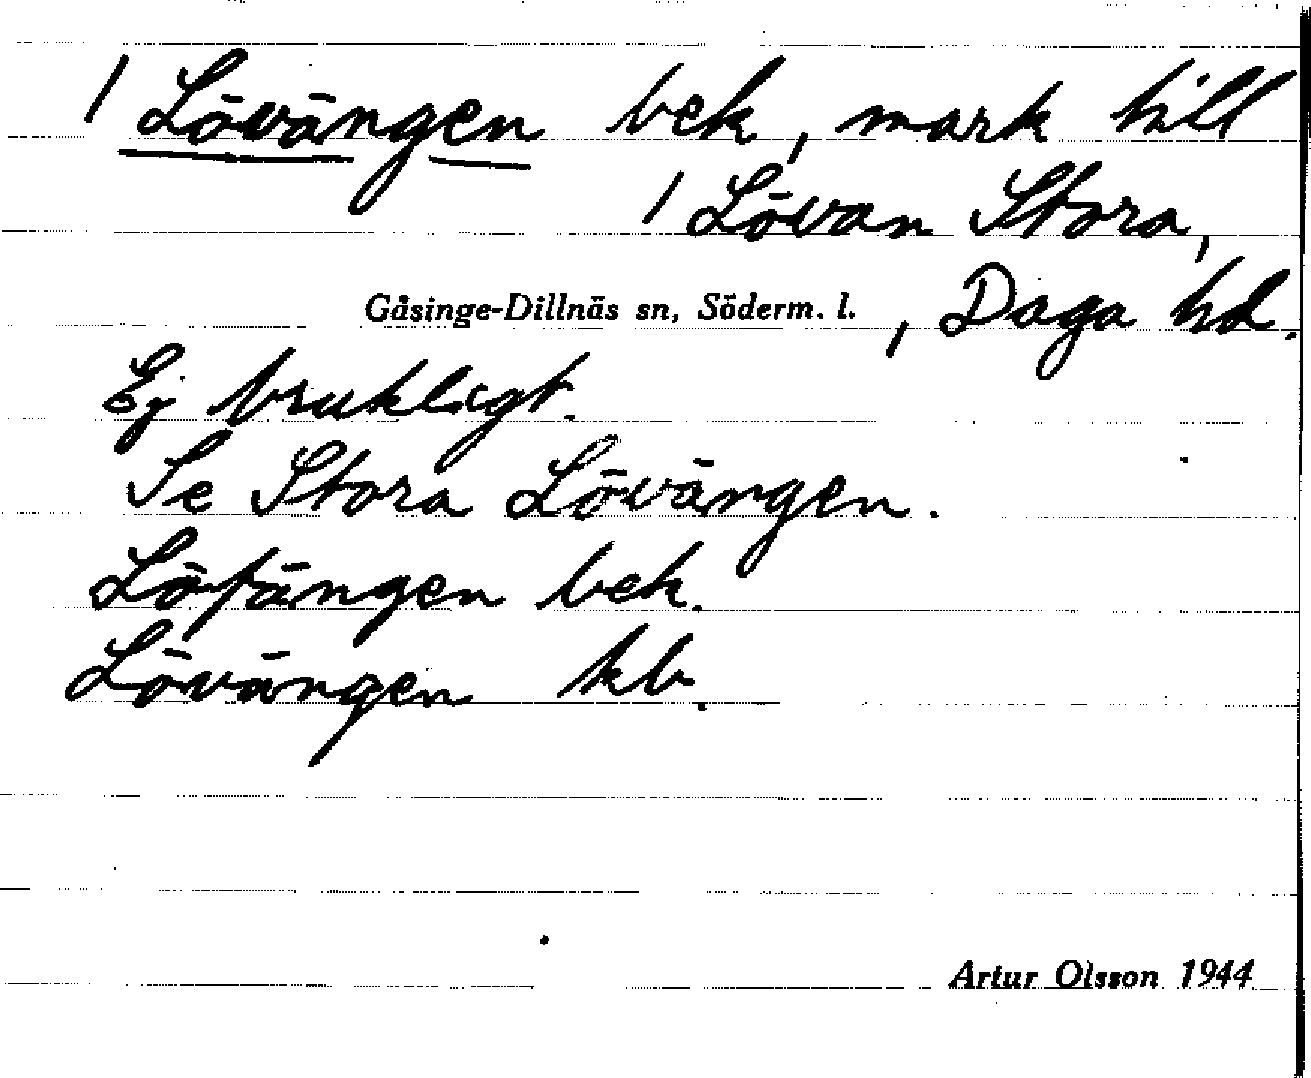 / Lövängen bek, mark till
/ Lövan Stora,
Gåsinge-Dillnäs sn, Söderm. l. , Daga hd.
Ej brukligt.
Se Stora Lövängen.
Löfängen bek.
Lövängen kb.
Artur Olsson 1944